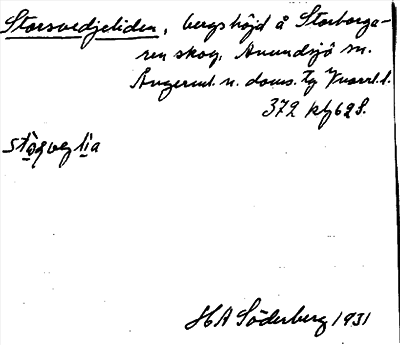 Storsvedjeliden, bergshöjd å Storborga-
ren skog, Anundsjö sn.
Ångerml. n. doms. Tg
372 kfg 62 S.
HA Söderberg 1931